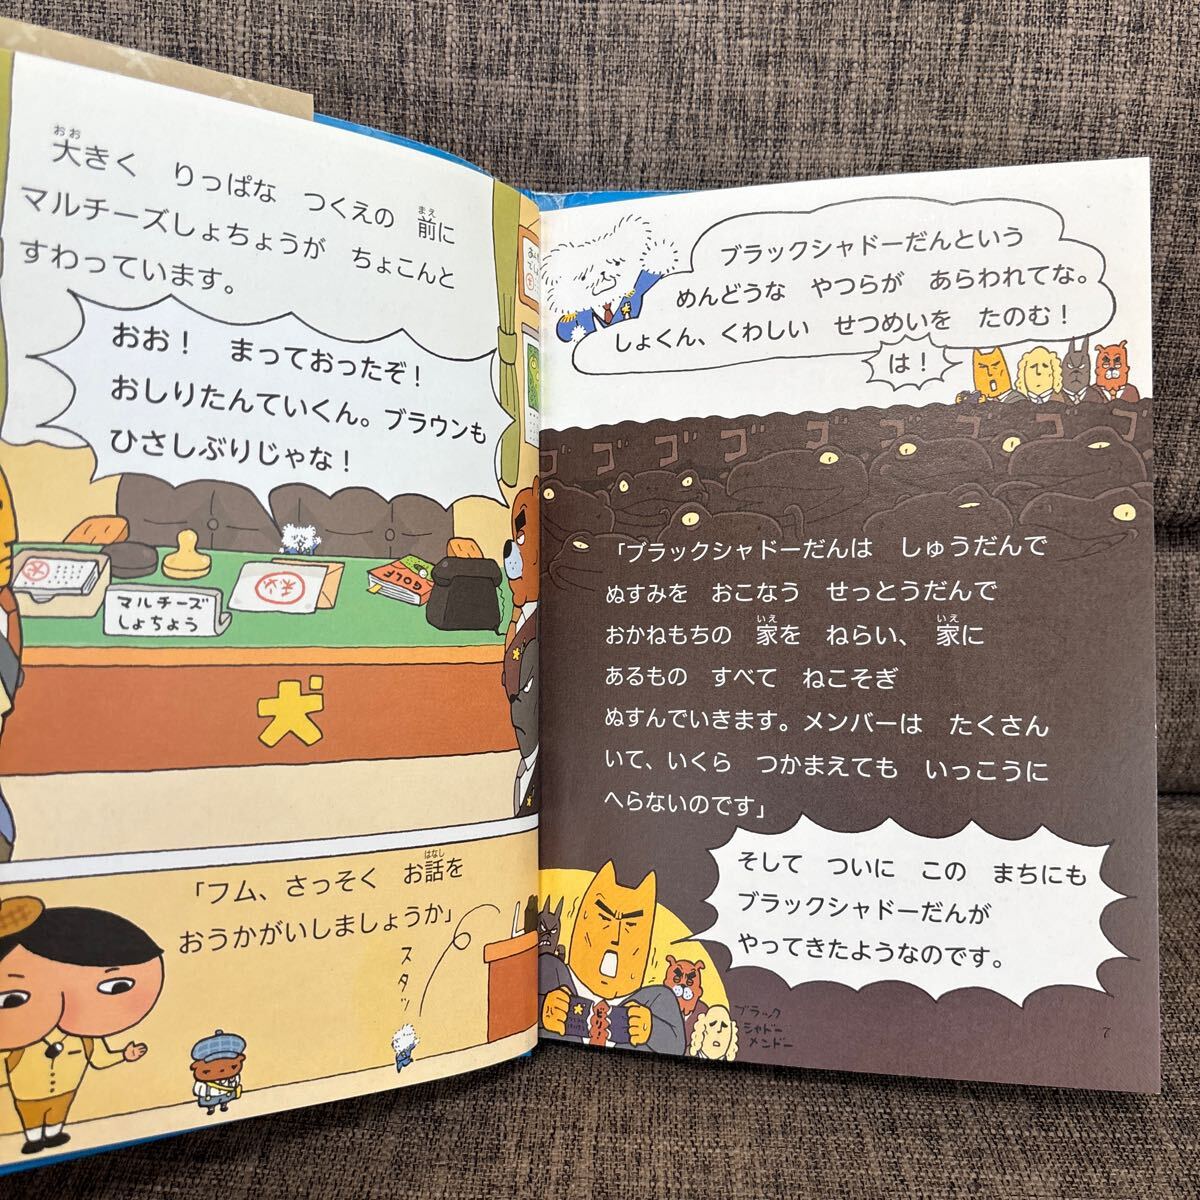 大きく りっぱな つくえの 前に
おお
まえ
マルチーズしょちょうが ちょこんと
すわっています。
おお! まっておったぞ!
おしりたんていくん。ブラウンも
ひさしぶりじゃな!
GOLF
マルチーズ
しょちょう
犬
「フム、さっそく お話を
はなし
おうかがいしましょうか」
スタッ
ブラックシャドーだんという
めんどうな やつらが あらわれてな。
しょくん、くわしい せつめいを たのむ!
は!
ゴゴゴゴゴゴゴゴ
「ブラックシャドーだんは しゅうだんで
ぬすみを おこなう せっとうだんで
おかねもちの 家を ねらい、 家に
いえ
いえ
あるもの すべて ねこそぎ
ぬすんでいきます。メンバーは たくさん
いて、いくら つかまえても いっこうに
へらないのです」
そして ついに この まちにも
ブラックシャドーだんが
やってきたようなのです。
ブラック
シャドー
メンドー
7